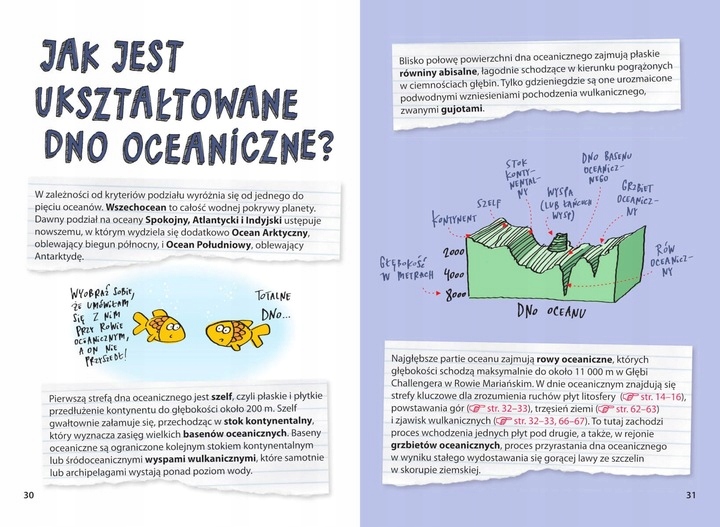 JAK JEST
UKSZTAŁTOWANE
DNO OCEANICZNE?
W zależności od kryteriów podziału wyróżnia się od jednego do
pięciu oceanów. Wszechocean to całość wodnej pokrywy planety.
Dawny podział na oceany Spokojny, Atlantycki i Indyjski ustępuje
nowszemu, w którym wydziela się dodatkowo Ocean Arktyczny,
oblewający biegun północny, i Ocean Południowy, oblewający
Antarktydę.
WYOBRAŹ SOBIE,
ŻE UMÓWIŁAM
SIĘ Z NIM
PRZY ROWIE
OCEANICZNYM,
A ON NIE
PRZYSZEDŁ!
TOTALNE
DNO...
Pierwszą strefą dna oceanicznego jest szelf, czyli płaskie i płytkie
przedłużenie kontynentu do głębokości około 200 m. Szelf
gwałtownie załamuje się, przechodząc w stok kontynentalny,
który wyznacza zasięg wielkich basenów oceanicznych. Baseny
oceaniczne są ograniczone kolejnym stokiem kontynentalnym
lub śródoceanicznymi wyspami wulkanicznymi, które samotnie
lub archipelagami wystają ponad poziom wody.
30
Blisko połowę powierzchni dna oceanicznego zajmują płaskie
równiny abisalne, łagodnie schodzące w kierunku pogrążonych
w ciemnościach głębin. Tylko gdzieniegdzie są one urozmaicone
podwodnymi wzniesieniami pochodzenia wulkanicznego,
zwanymi gujotami.
KONTYNENT
SZELF
STOK
KONTY-
NENTAL-
NY
WYSPA
(LUB ŁAŃCUCH
WYSP)
DNO BASENU
OCEANICZ-
NEGO
GRZBIET
OCEANICZ-
NY
RÓW
OCEANICZ-
NY
GŁĘBOKOŚĆ
W METRACH
2000
4000
8000
DNO OCEANU
Najgłębsze partie oceanu zajmują rowy oceaniczne, których
głębokości schodzą maksymalnie do około 11 000 m w Głębi
Challengera w Rowie Mariańskim. W dnie oceanicznym znajdują się
strefy kluczowe dla zrozumienia ruchów płyt litosfery (☞ str. 14–16),
powstawania gór (☞ str. 32–33), trzęsień ziemi (☞ str. 62–63)
i zjawisk wulkanicznych (☞ str. 32–33, 66–67). To tutaj zachodzi
proces wchodzenia jednych płyt pod drugie, a także, w rejonie
grzbietów oceanicznych, proces przyrastania dna oceanicznego
w wyniku stałego wydostawania się gorącej lawy ze szczelin
w skorupie ziemskiej.
31